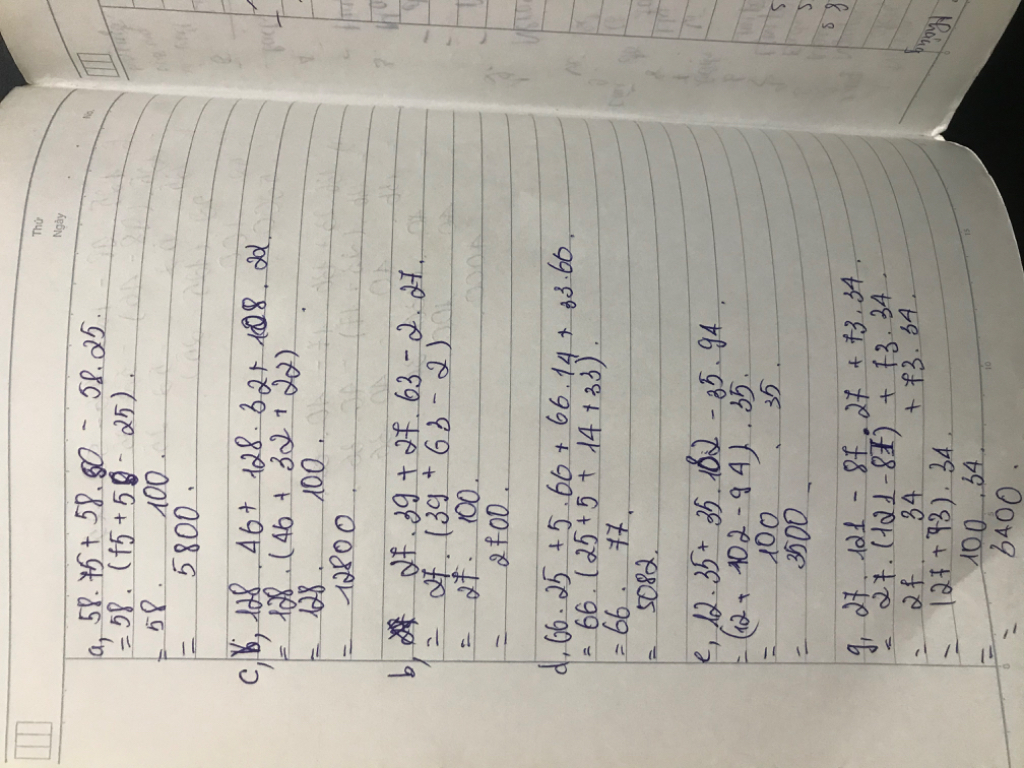 Thứ
Ngày
No.
a, 58.75 + 58.50 - 58.25.
= 58. (75 + 50 - 25).
= 58. 100
= 5800.
c, 128.46 + 128.32 + 128.22
= 128.(46 + 32 + 22)
= 128. 100.
= 12800
b, 27.39 + 27.63 - 2.27.
= 27. (39 + 63 - 2)
= 27. 100.
= 2700.
d, 66.25 + 5.66 + 66.14 + 33.66.
= 66.(25 + 5 + 14 + 33).
= 66. 77.
= 5082.
e, 12.35 + 35.182 - 35.94.
= (12 + 102 - 94).35.
= 100. 35.
= 3500.
g, 27.121 - 87.27 + 73.34.
= 27.(121 - 87) + 73.34.
= 27. 34 + 73.34.
= (27 + 73).34.
= 100.34.
= 3400.